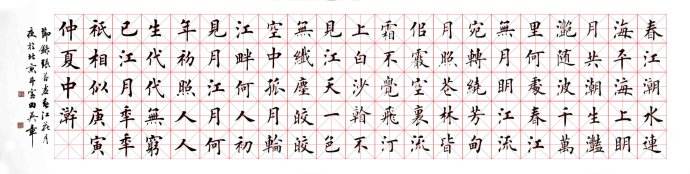 春江潮水連
海平海上明
月共潮生灩
灩随波千萬
里何處春江
無月明江流
宛轉繞芳甸
月照花林皆
侶霰空裏流
霜不覺飛汀
上白沙看不
見江天一色
無纖塵皎皎
空中孤月輪
江畔何人初
見月江月何
年初照人人
生代代無窮
已江月年年
祇相似庚寅
仲夏中澣
節錄張若虛春江花月
夜於北京